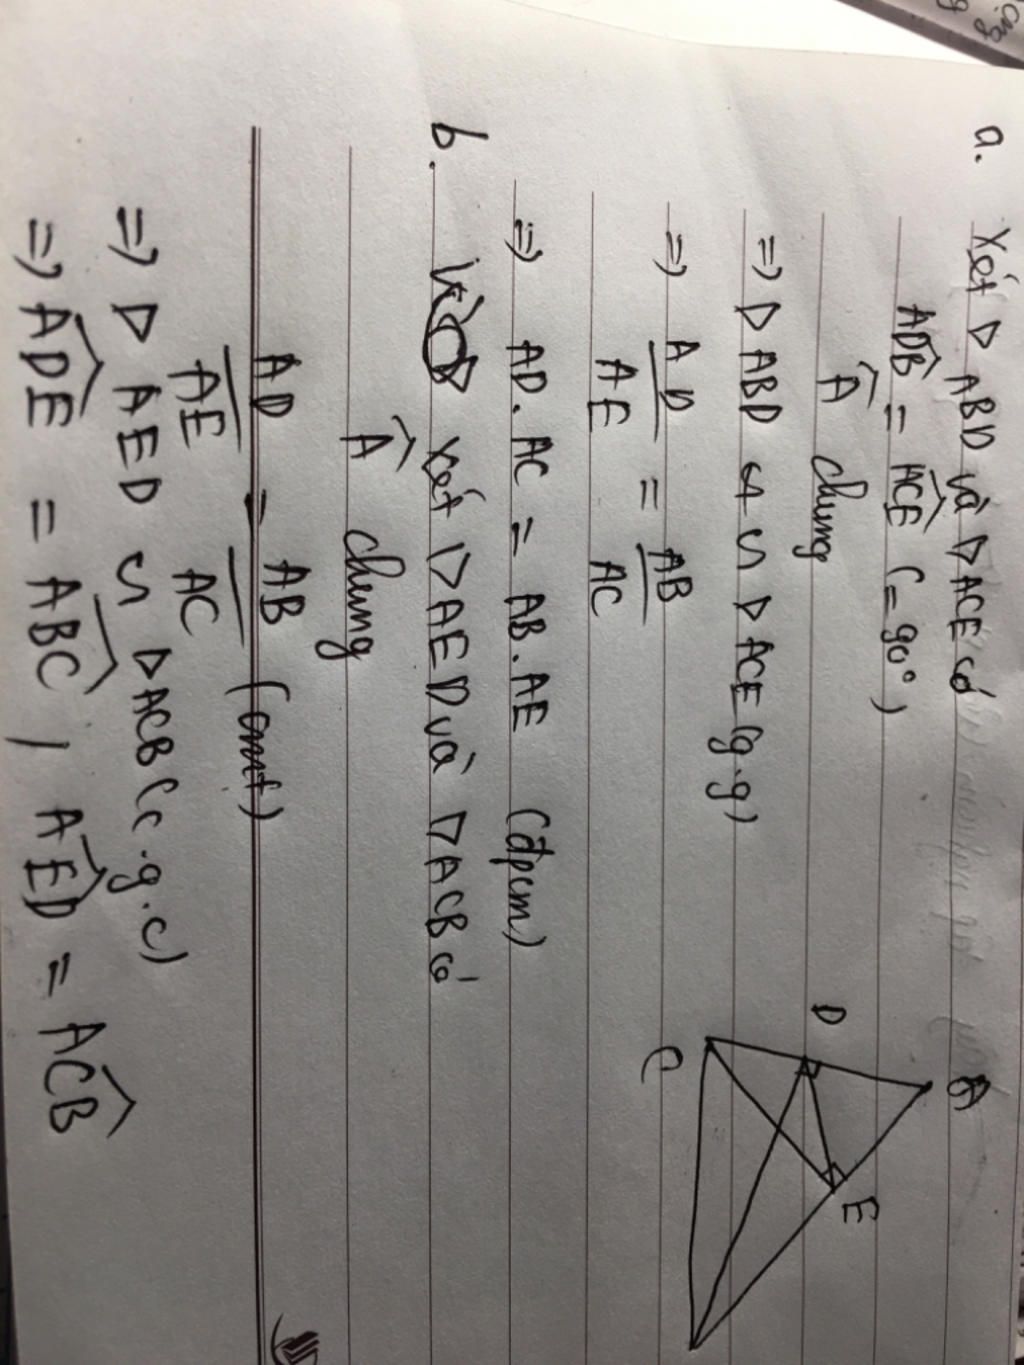 a. Xét Δ ABD và Δ ACE có
ADB = ACE (= 90°)
A chung
=> Δ ABD ∽ Δ ACE (g.g)
=> AD/AE = AB/AC
=> AD.AC = AB.AE (đpcm)
b. Xét Δ AED và Δ ACB có
A chung
AD/AE = AB/AC (cmt)
=> Δ AED ∽ Δ ACB (c.g.c)
=> ADE = ABC, AED = ACB
A
D
E
C